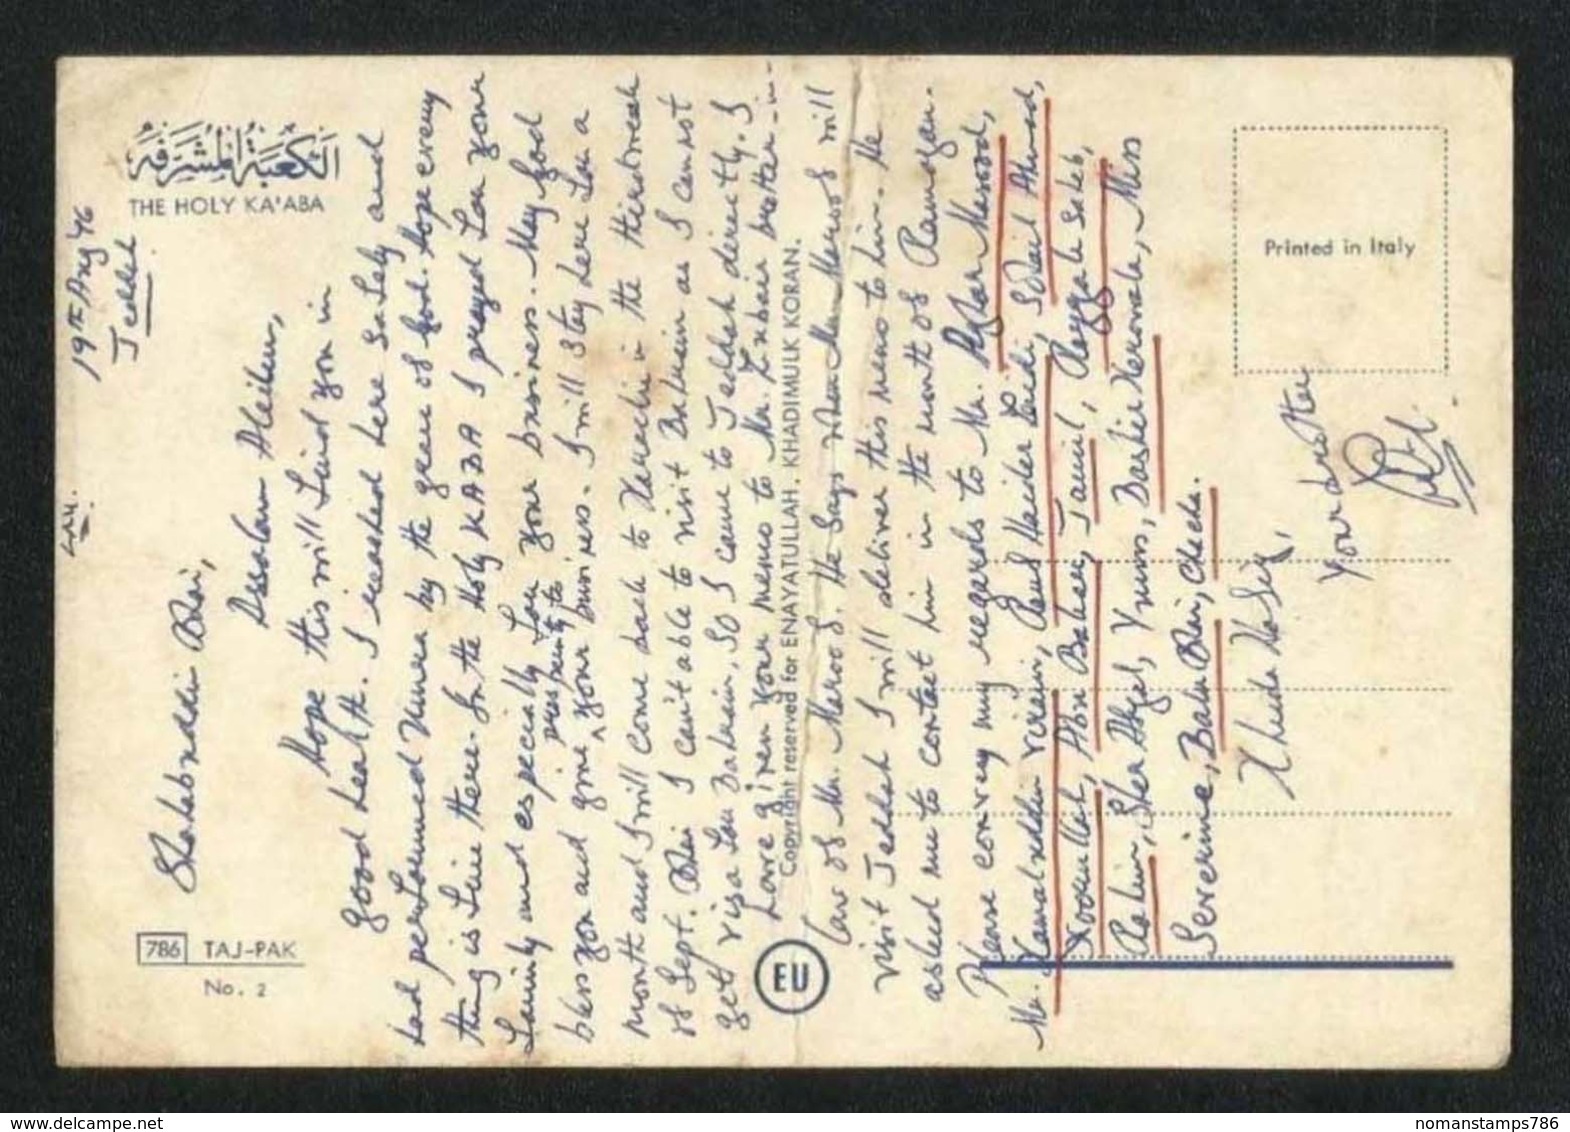 الكعبة المشرفة
THE HOLY KA'ABA
786 TAJ-PAK
No. 2
Printed in Italy
Copyright reserved for ENAYATULLAH. KHADIMULK KORAN.
EU
19th Aug '76
Jeddah
Shahabuddin Bhai,
Assalam Aleikum,
Hope this will find you in
good health. I reached here safely and
had performed Umera by the grace of God. Hope every
thing is fine there. In the Holy KABA I prayed for your
family and especially for your business. May God
bless you and give prosperity to your business. I will stay here for a
month and I will come back to Karachi in the third week
of Sept. Bhai I can't able to visit Bahrain as I cannot
get visa for Bahrain, so I came to Jeddah directly. I
have given your memo to Mr. Zubair brother-in-
law of Mr. Maroof. He says when Mr. Maroof will
visit Jeddah I will deliver this memo to him. He
asked me to contact him in the month of Ramazan.
Please convey my regards to Mr. Masood,
Mr. Kamaluddin Haider Zaidi, Sohail Ahmad,
Abu Baker, Jamil, Razzak Saheb,
Rahim, Sher Afzal, Yunus, Bashir Miss
Severine, Babu Bhai, Chacha.
Khuda Hafiz,
Your brother
nomanstamps786